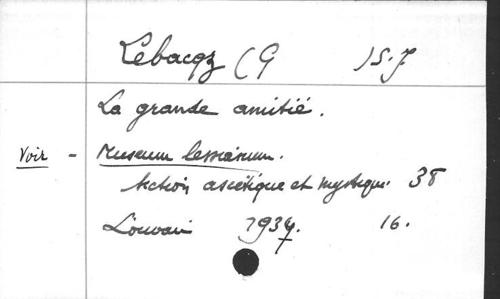 Lebacqz (G) S.J
La grande amitié.
Voir - Museum lessianum.
Section ascétique et mystique. 38
Louvain 1937. 16.